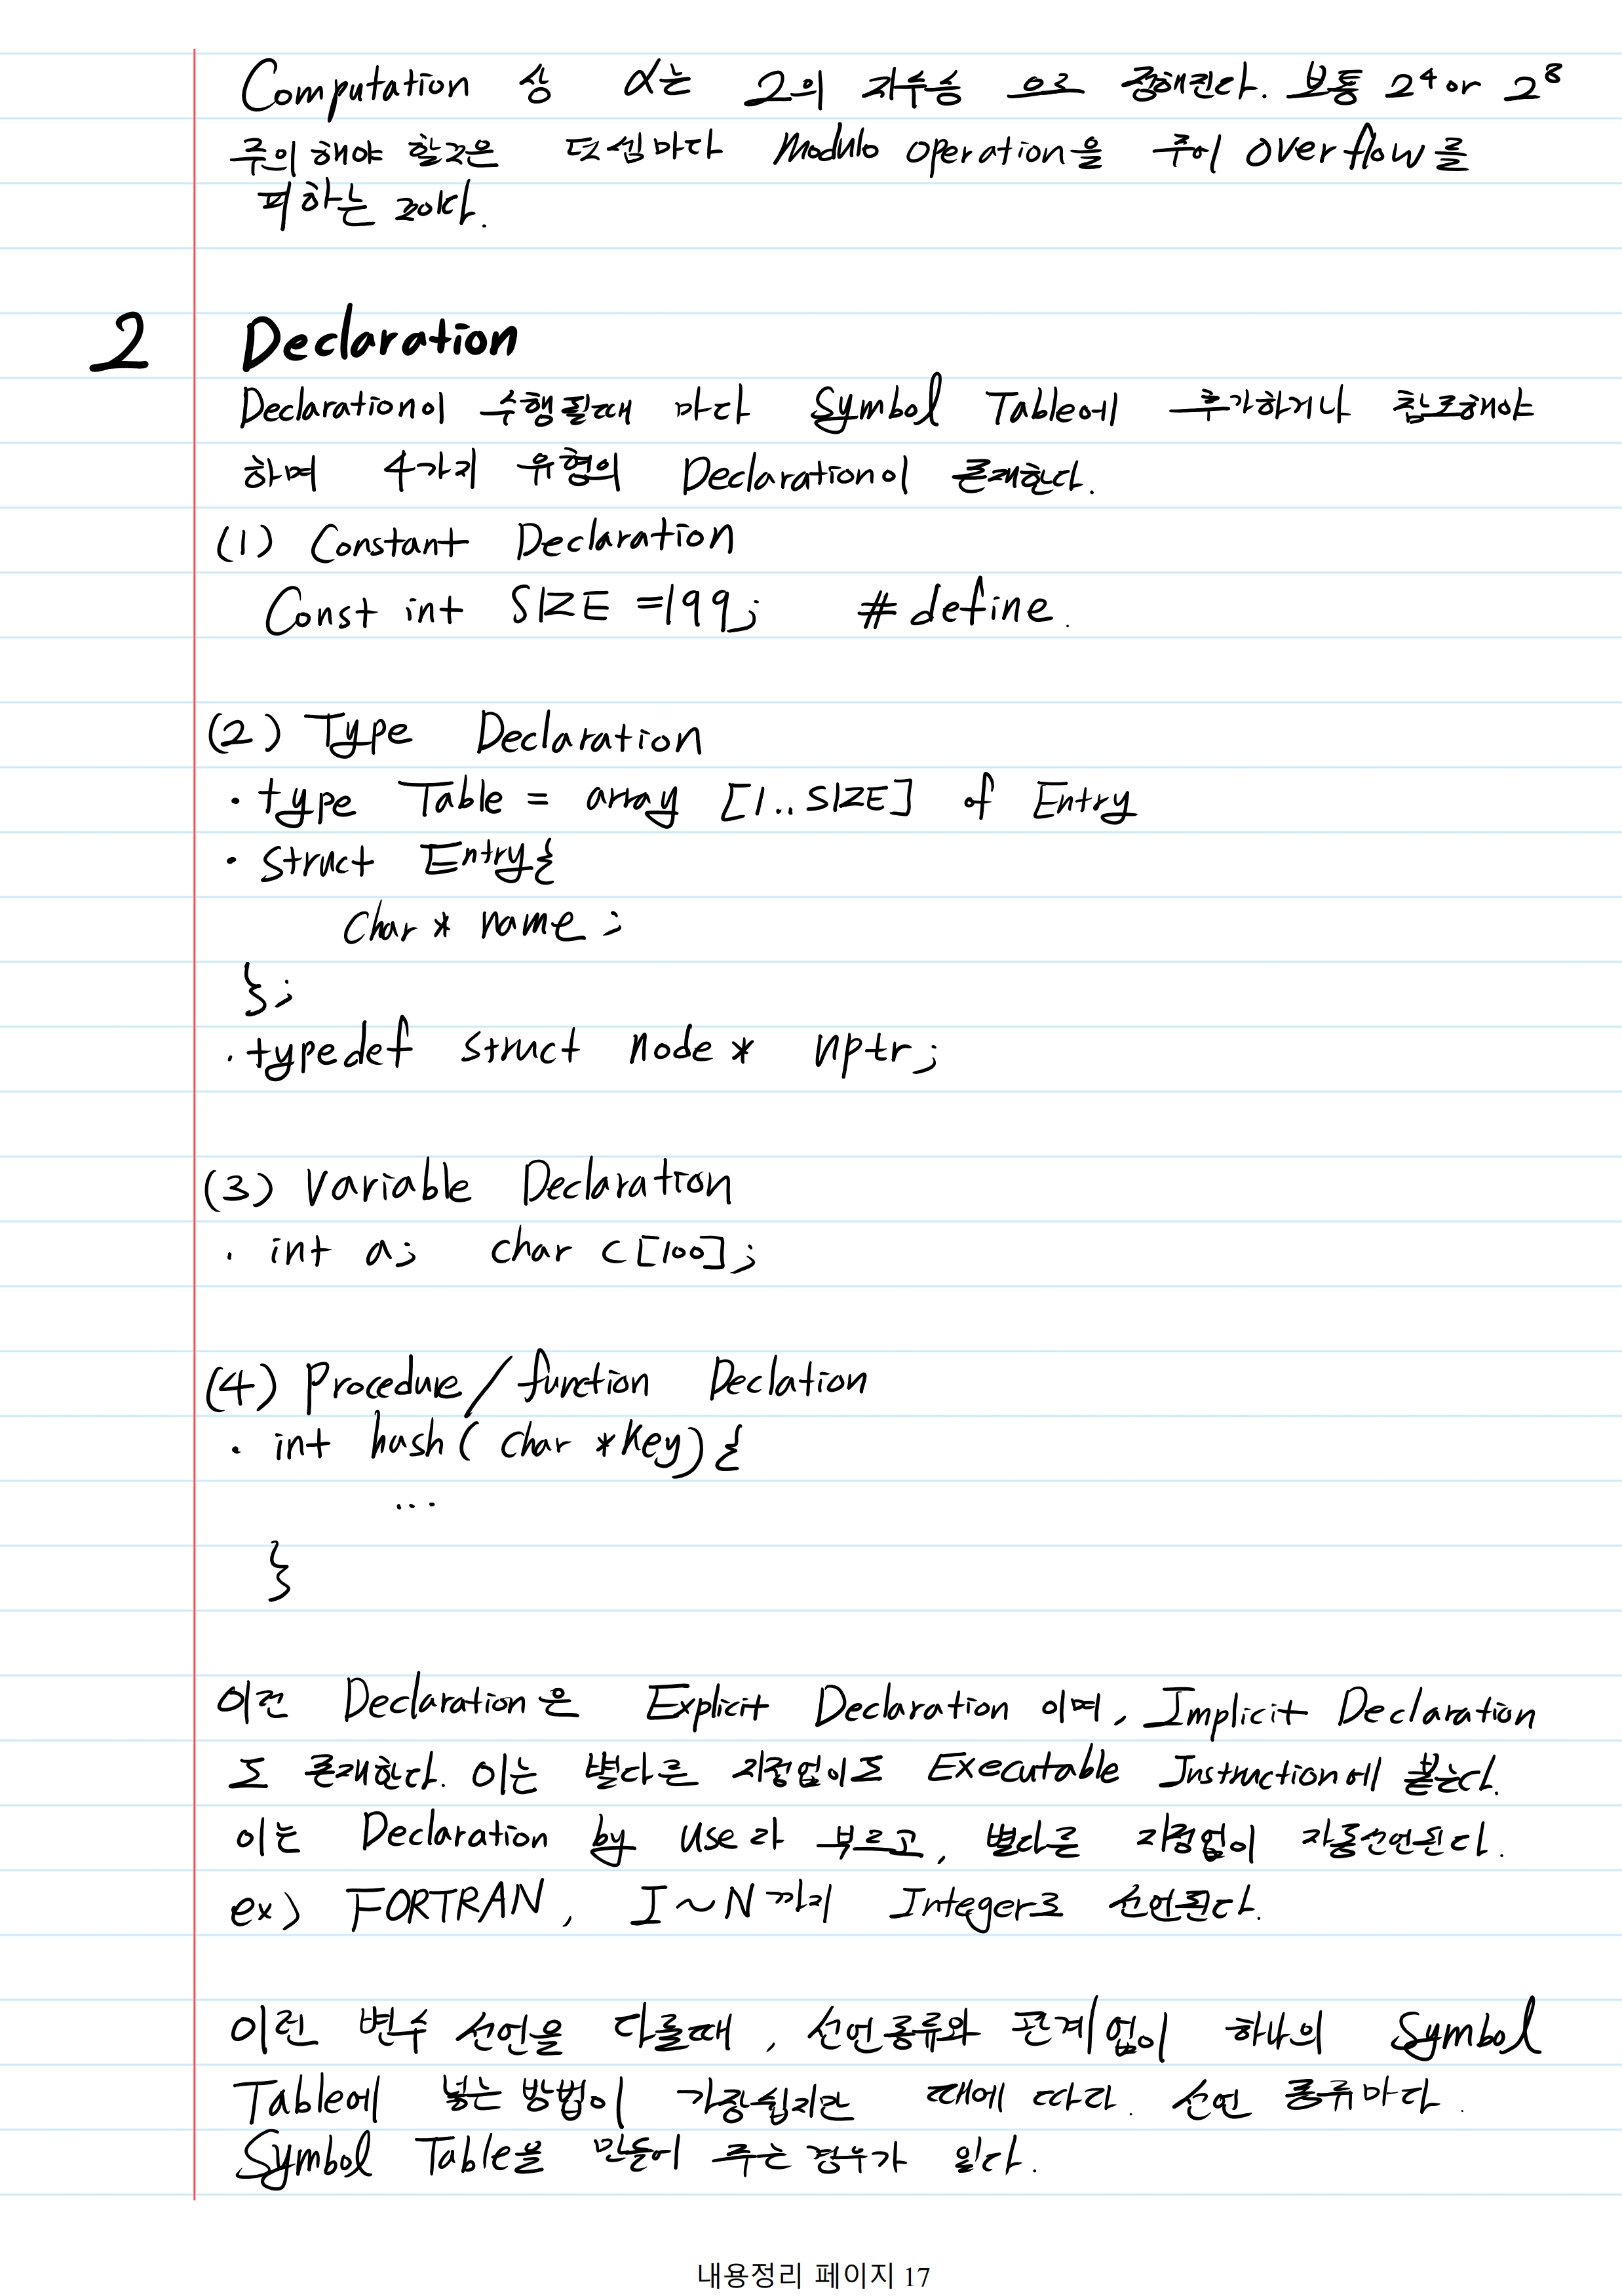 Computation 상 α는 2의 지수승 으로 정해진다. 보통 2⁴ or 2⁸
주의 해야 할것은 덧셈마다 Modulo operation을 주어 overflow를
피하는 것이다.
2 Declaration
Declaration이 수행될때 마다 Symbol Table에 추가하거나 참조해야
하며 4가지 유형의 Declaration이 존재한다.
(1) Constant Declaration
Const int SIZE =199; # define.
(2) Type Declaration
· type Table = array [1..SIZE] of Entry
· struct Entry{
char * name ;
};
· typedef struct node * nptr;
(3) Variable Declaration
· int a; char c[100];
(4) Procedure/function Declation
· int hash( char *key) {
...
}
이런 Declaration은 Explicit Declaration 이며, Implicit Declaration
도 존재한다. 이는 별다른 지정없이도 Executable Instruction에 붙는다.
이는 Declaration by use라 부르고, 별다른 지정없이 자동선언된다.
ex) FORTRAN, I~N까지 Integer로 선언된다.
이런 변수 선언을 다룰때, 선언종류와 관계없이 하나의 Symbol
Table에 넣는 방법이 가장쉽지만 때에 따라. 선언 종류마다.
Symbol Table을 만들어 주는 경우가 있다.
내용정리 페이지 17